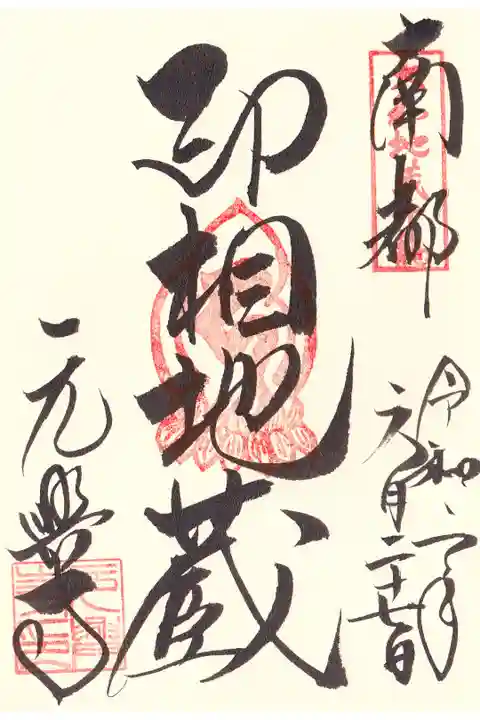 南都
令和六年
六月二十七日
印相地蔵
元興寺